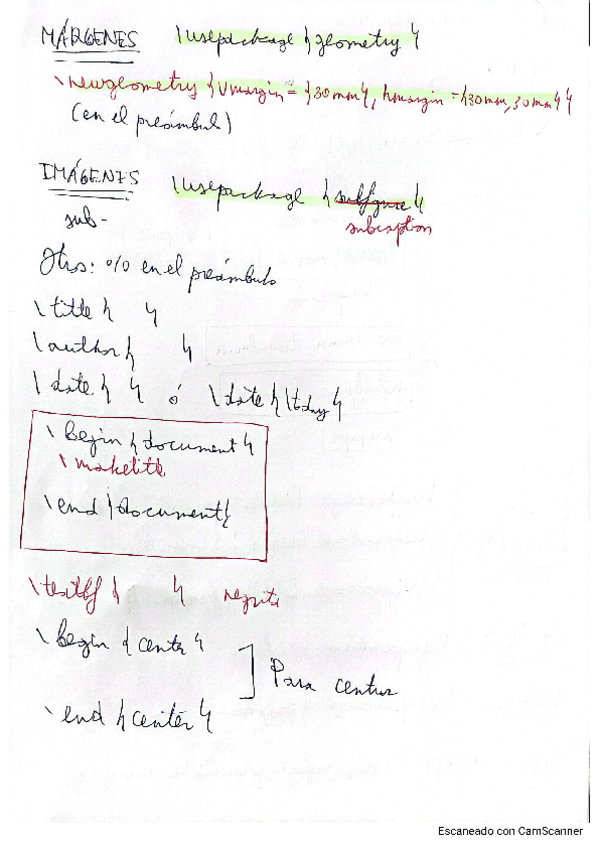 MÁRGENES \usepackage {geometry}
\newgeometry {Vmargin = {30mm}, hmargin = {30mm, 30mm}}
(en el preámbulo)
IMÁGENES \usepackage {subfigure}
sub- subcaption
Otros: % en el preámbulo
\title { }
\author { }
\date { } ó \date {\today}
\begin {document}
\maketitle
\end {document}
\textbf { } negrita
\begin {center}
Para centrar
\end {center}
Escaneado con CamScanner